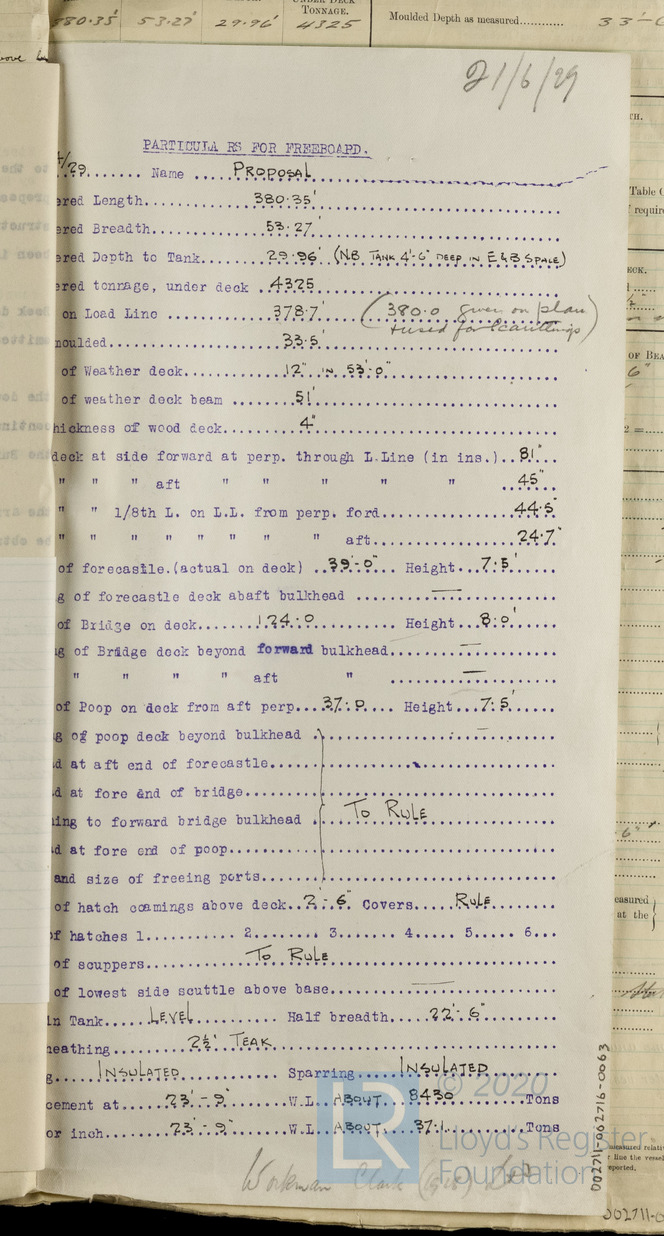 580.35 53.27' 29.96' 4325
UNDER DECK
TONNAGE.
Moulded Depth as measured............ 33'-
21/6/29
PARTICULARS FOR FREEBOARD.
/29....... Name ..... PROPOSAL
ered Length.............. 380.35'
ered Breadth............. 53.27'
ered Depth to Tank....... 29.96' (N.B. TANK 4'-6" DEEP IN E&B SPALE)
ered tonnage, under deck . 4325
on Load Line ............ 378.7' (380.0 given on plan
& used for scantlings)
moulded................. 33.5'
of Weather deck............ 12" IN 53'-0"
of weather deck beam ....... 51'
hickness of wood deck....... 4"
deck at side forward at perp. through L.Line (in ins.).. 81"
" " " aft " " " " " .. 45"
" " 1/8th L. on L.L. from perp. ford.............. 44.5"
" " " " " " " " aft............... 24.7"
of forecastle.(actual on deck) .. 39'-0" Height... 7.5'
g of forecastle deck abaft bulkhead ........ —
of Bridge on deck...... 124.0 Height... 8.0'
g of Bridge deck beyond forward bulkhead...... —
" " " " aft " ...... —
of Poop on deck from aft perp... 37.0 Height... 7.5'
g of poop deck beyond bulkhead .. —
d at aft end of forecastle......
d at fore end of bridge.........
ing to forward bridge bulkhead . TO RULE
d at fore end of poop...........
and size of freeing ports.......
of hatch coamings above deck.. 2'-6" Covers.... RULE
of hatches 1.......... 2......... 3....... 4..... 5..... 6...
of scuppers.......... TO RULE
of lowest side scuttle above base...... —
in Tank..... LEVEL Half breadth.... 22'-6"
heathing......... 2½" TEAK
g.... INSULATED Sparring .... INSULATED
cement at...... 23'-9" W.L. ABOUT 8430 Tons
or inch........ 23'-9" W.L. ABOUT 37.1 Tons
Workman Clark (1928) Ltd
© 2020
Lloyd's Register
Foundation
002711-002716-0063
002711-0
Table
require
OF BEA
6"
easured
at the
measured relati
line the vessel
reported.